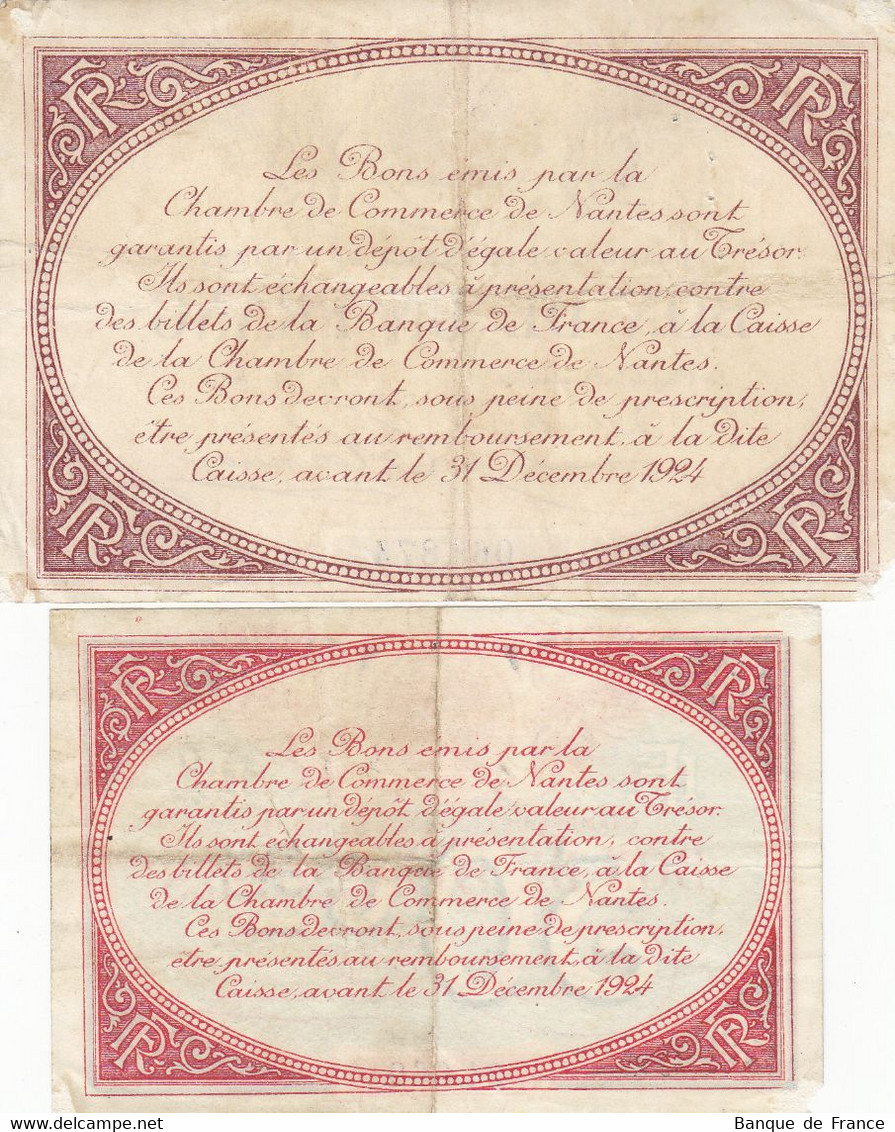 RF RF
Les Bons émis par la
Chambre de Commerce de Nantes sont
garantis par un dépôt d'égale valeur au Trésor.
Ils sont échangeables à présentation, contre
des billets de la Banque de France, à la Caisse
de la Chambre de Commerce de Nantes.
Ces Bons devront, sous peine de prescription,
être présentés au remboursement, à la dite
Caisse, avant le 31 Décembre 1924
RF RF
RF RF
Les Bons émis par la
Chambre de Commerce de Nantes sont
garantis par un dépôt d'égale valeur au Trésor.
Ils sont echangeables à présentation, contre
des billets de la Banque de France, à la Caisse
de la Chambre de Commerce de Nantes.
Ces Bons devront, sous peine de prescription,
être présentés au remboursement, à la dite
Caisse, avant le 31 Décembre 1924
RF RF
delcampe.net
Banque de France